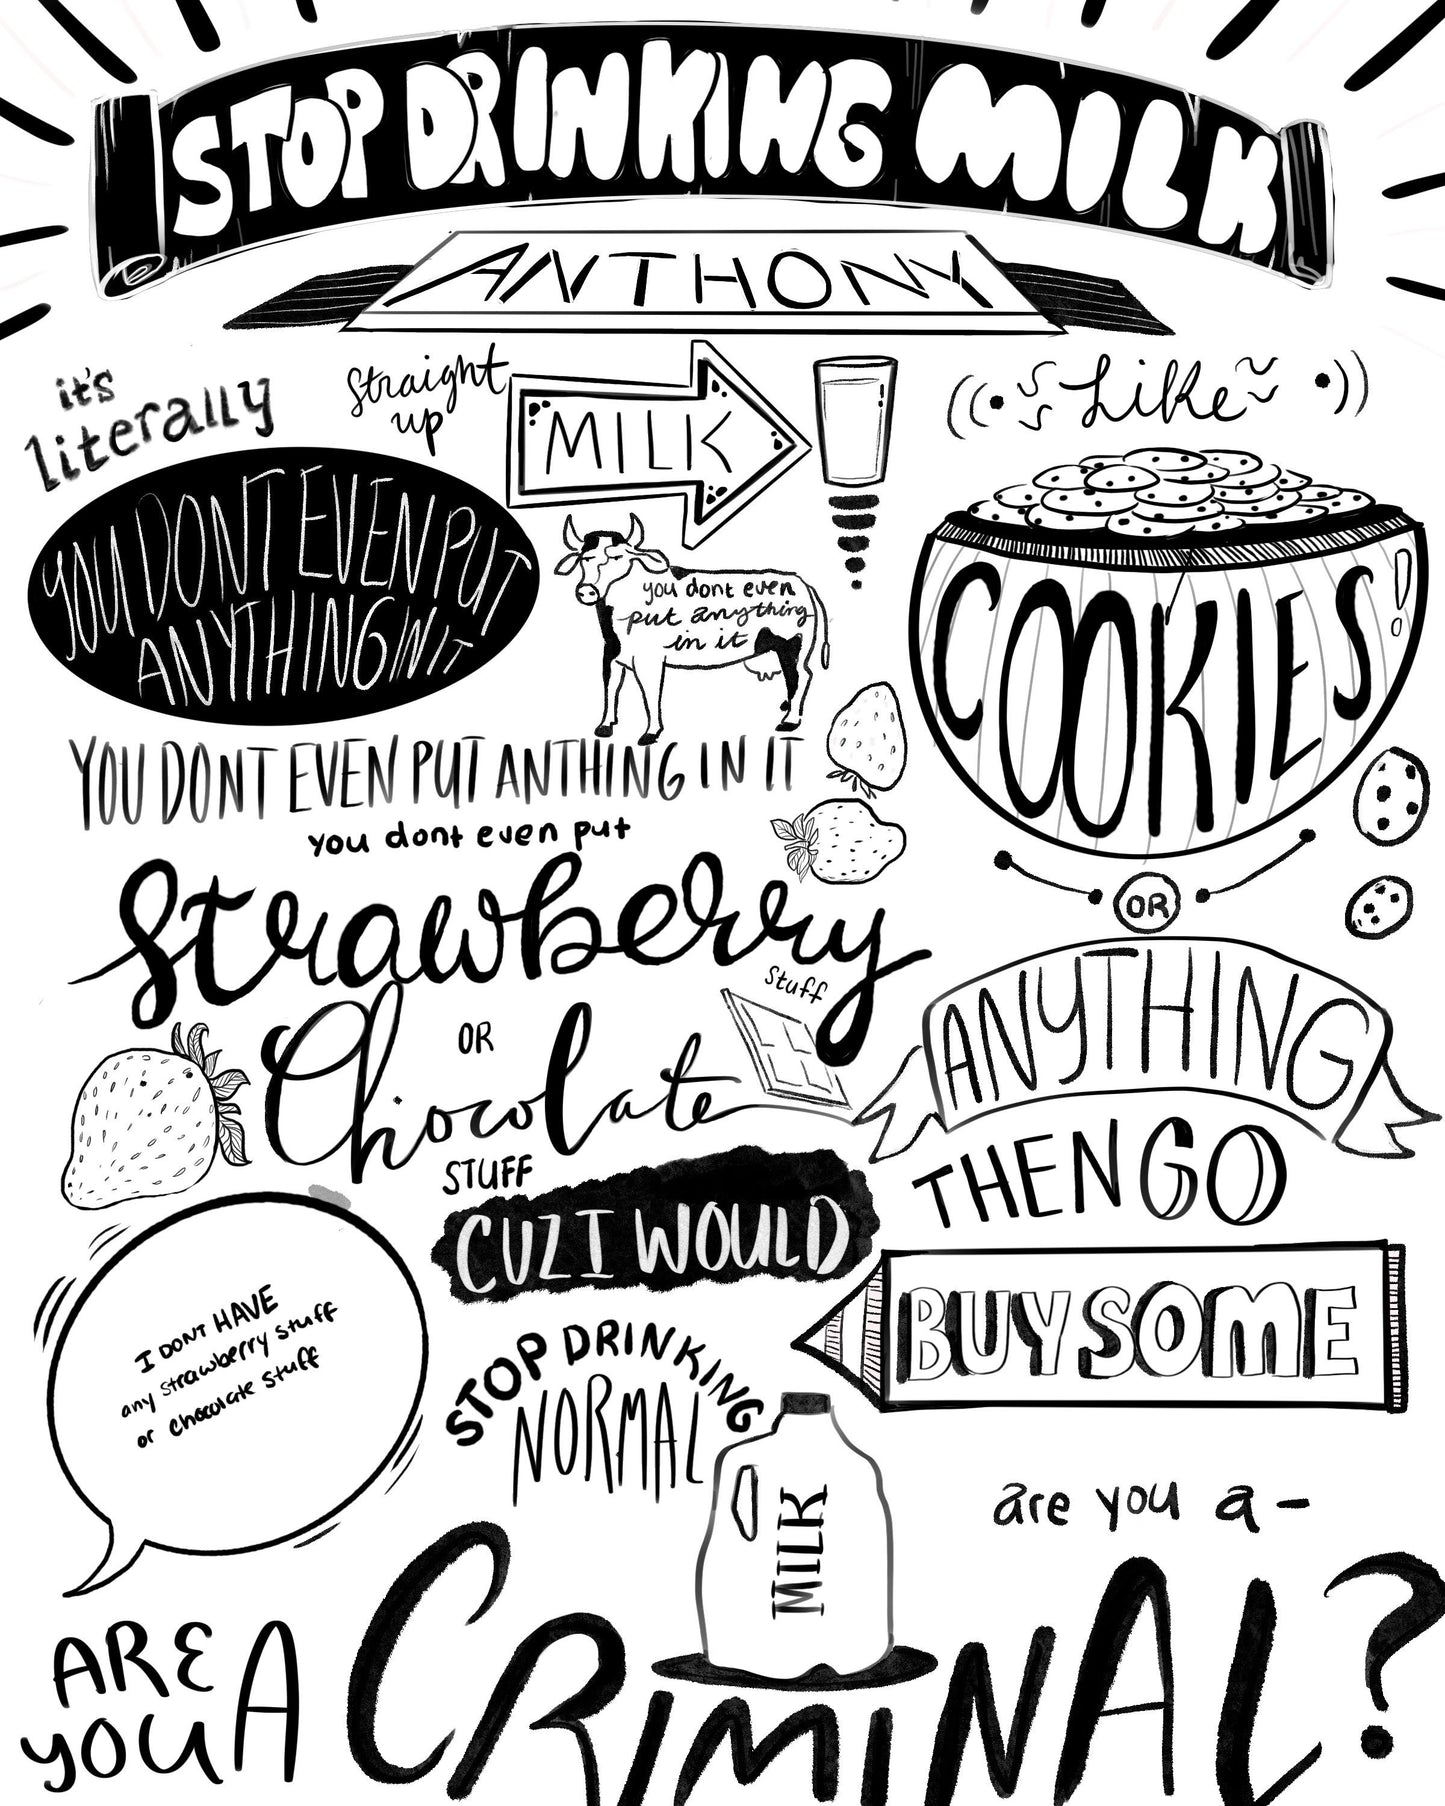 STOP DRINKING MILK
ANTHONY
it's
literally
straight
up
MILK
YOU DONT EVEN PUT
ANYTHING IN IT
you dont even
put anything
in it
YOU DONT EVEN PUT ANTHING IN IT
you dont even put
Strawberry
stuff
OR
Chocolate
STUFF
CUZ I WOULD
I DONT HAVE
any strawberry stuff
or chocolate stuff
Like
COOKIES!
OR
ANYTHING
THEN GO
BUY SOME
STOP DRINKING
NORMAL
MILK
are you a-
ARE
YOU A
CRIMINAL?